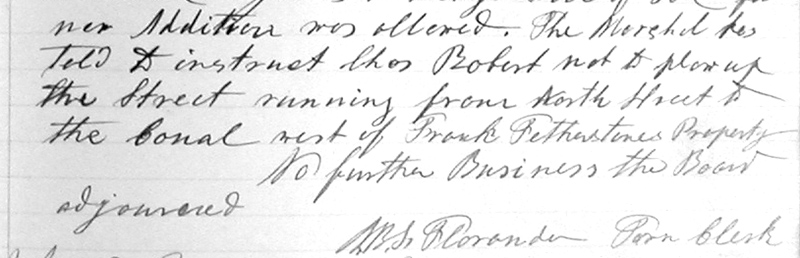 ner Addition was allowed. The Marshal was
Told to instruct Chas Robert not to plow up
the Street running from North Street to
the Canal west of Frank Fetherstones Property
No further Business the Board
adjourned
Town Clerk